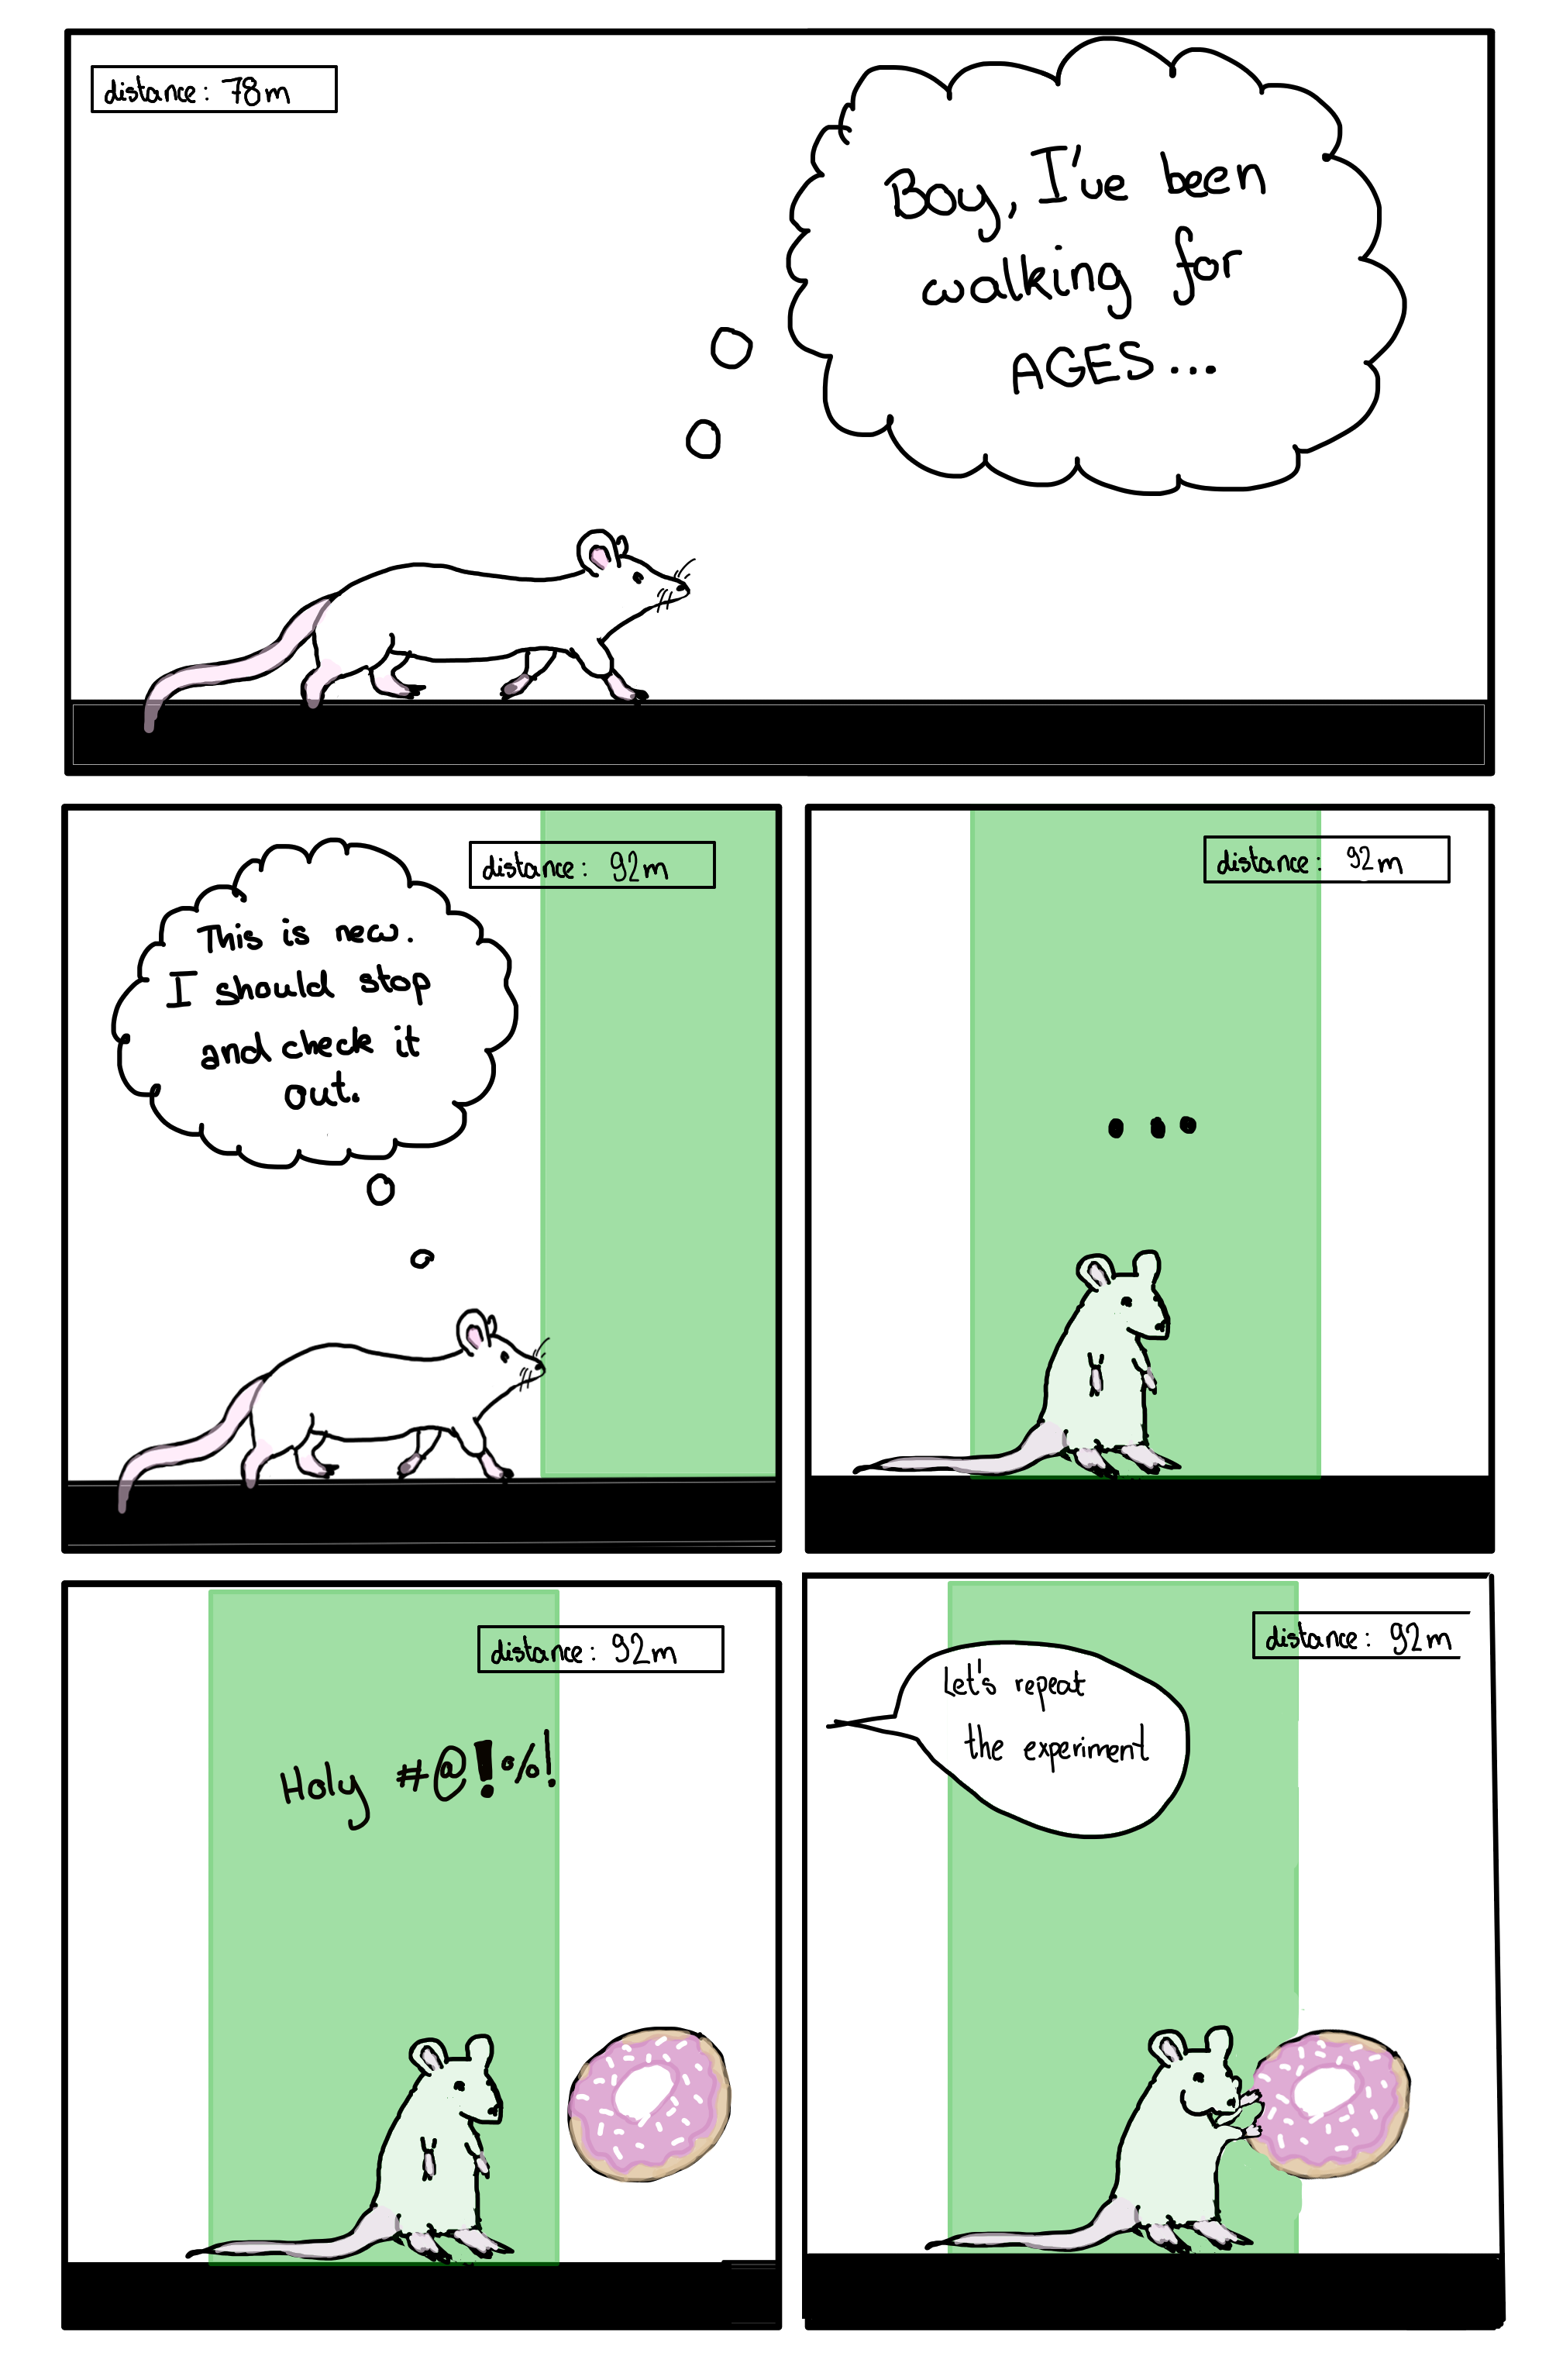 distance: 78m
Boy, I've been
walking for
AGES...
This is new.
I should stop
and check it
out.
distance: 92m
distance: 92m
...
distance: 92m
Holy #@!%!
distance: 92m
Let's repeat
the experiment